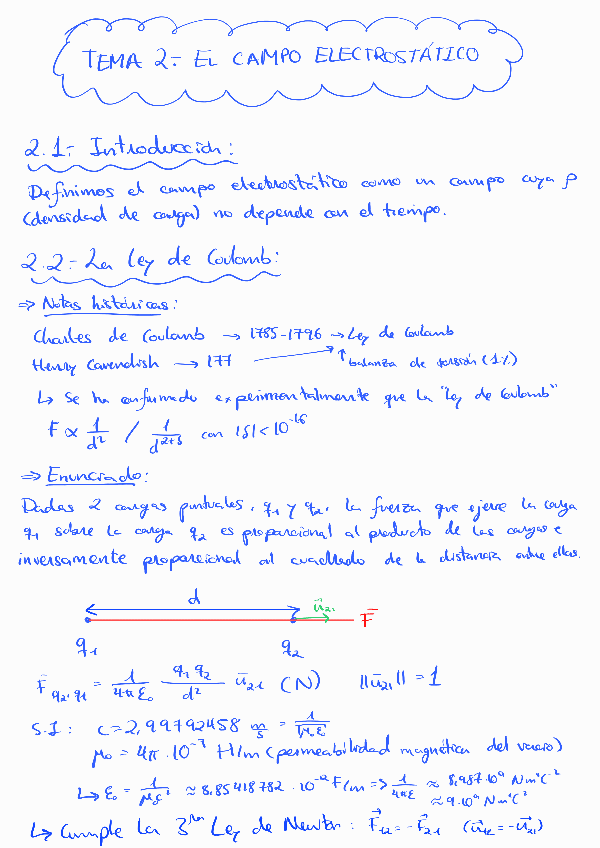 TEMA 2.- EL CAMPO ELECTROSTÁTICO
2.1.- Introducción:
Definimos el campo electrostático como un campo cuya ρ
(densidad de carga) no depende con el tiempo.
2.2.- La Ley de Coulomb:
⇒ Notas históricas:
Charles de Coulomb → 1785-1796 → Ley de Coulomb
Henry Cavendish → 177 ↑ balanza de torsión (1%)
↳ Se ha confirmado experimentalmente que la "ley de Coulomb"
F ∝ 1/d² / 1/d^(2+δ) con |δ| < 10^-16
⇒ Enunciado:
Dadas 2 cargas puntuales, q₁ y q₂, la fuerza que ejerce la carga
q₁ sobre la carga q₂ es proporcional al producto de las cargas e
inversamente proporcional al cuadrado de la distancia entre ellas.
d
ū₂₁
F̄
q₁ q₂
F̄ q₂,q₁ = 1/4πε₀ q₁q₂/d² ū₂₁ (N) ||ū₂₁|| = 1
S.I: c = 2,99792458 m/s = 1/√με
μ₀ = 4π · 10^-7 H/m (permeabilidad magnética del vacío)
↳ ε₀ = 1/μc² ≈ 8,85418782 · 10^-12 F/m => 1/4πε ≈ 8,987·10⁹ Nm²C^-2
≈ 9·10⁹ Nm²C^2
↳ Cumple la 3ra Ley de Newton: F⃗₁₂ = -F⃗₂₁ (ū₁₂ = -ū₂₁)